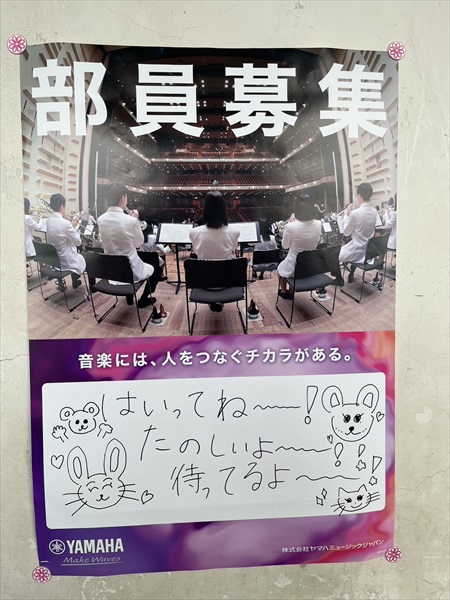 部員募集
音楽には、人をつなぐチカラがある。
はいってね〜〜!
たのしいよ〜〜!
待ってるよ〜〜!
YAMAHA
Make Waves
株式会社ヤマハミュージックジャパン